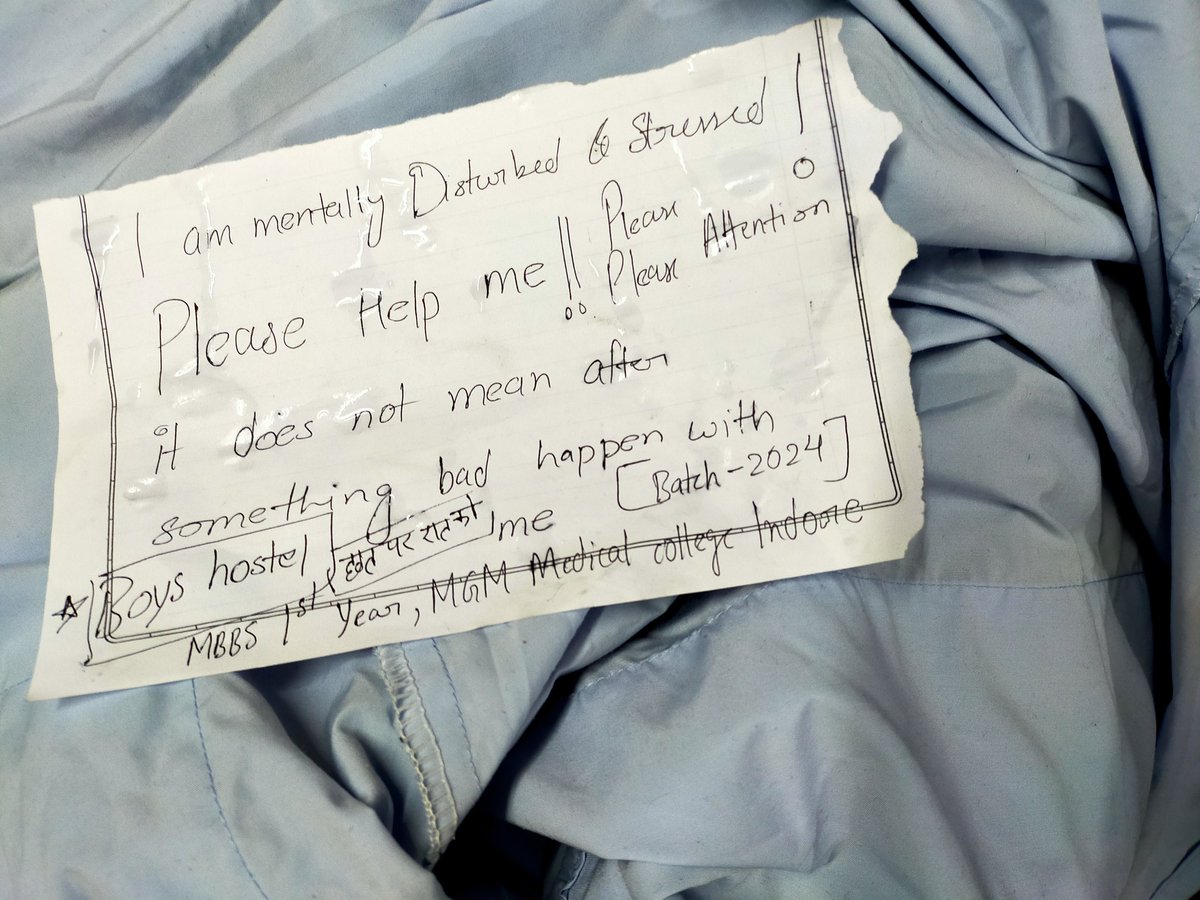 I am mentally Disturbed & Stressed !
Please Help me !! Please
Please Attention
it does not mean after
something bad happen with
me [Batch-2024]
Boys hostel छत पर रात को
MBBS 1st Year, MGM Medical college Indore